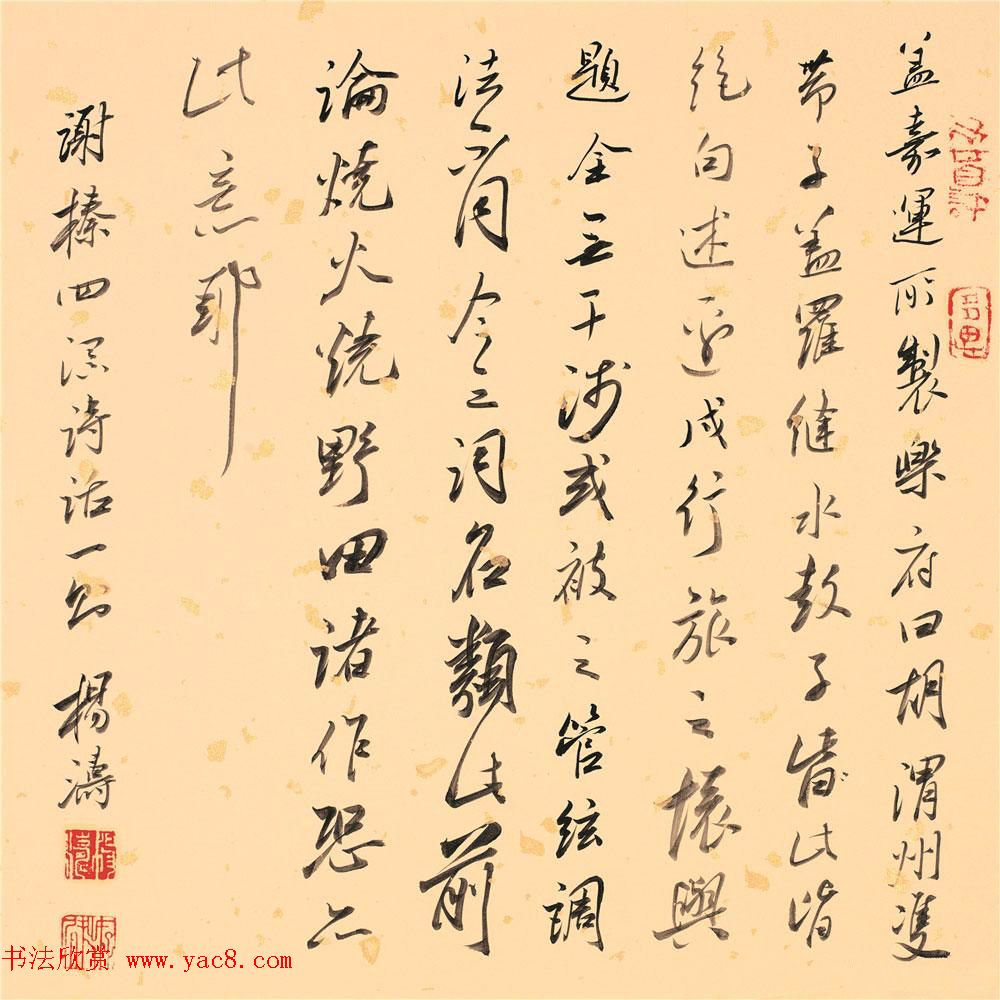 蓋嘉運所製樂府曰胡渭州雙
帶子蓋羅縫水鼓子皆此皆
絕句述邊戍行旅之懷與
題全無干涉或被之管絃調
法不同今之詞名類此前
論燒火燒野田諸作恐亦
此意耶
謝榛四溟詩話一則 楊濤
书法欣赏 www.yac8.com